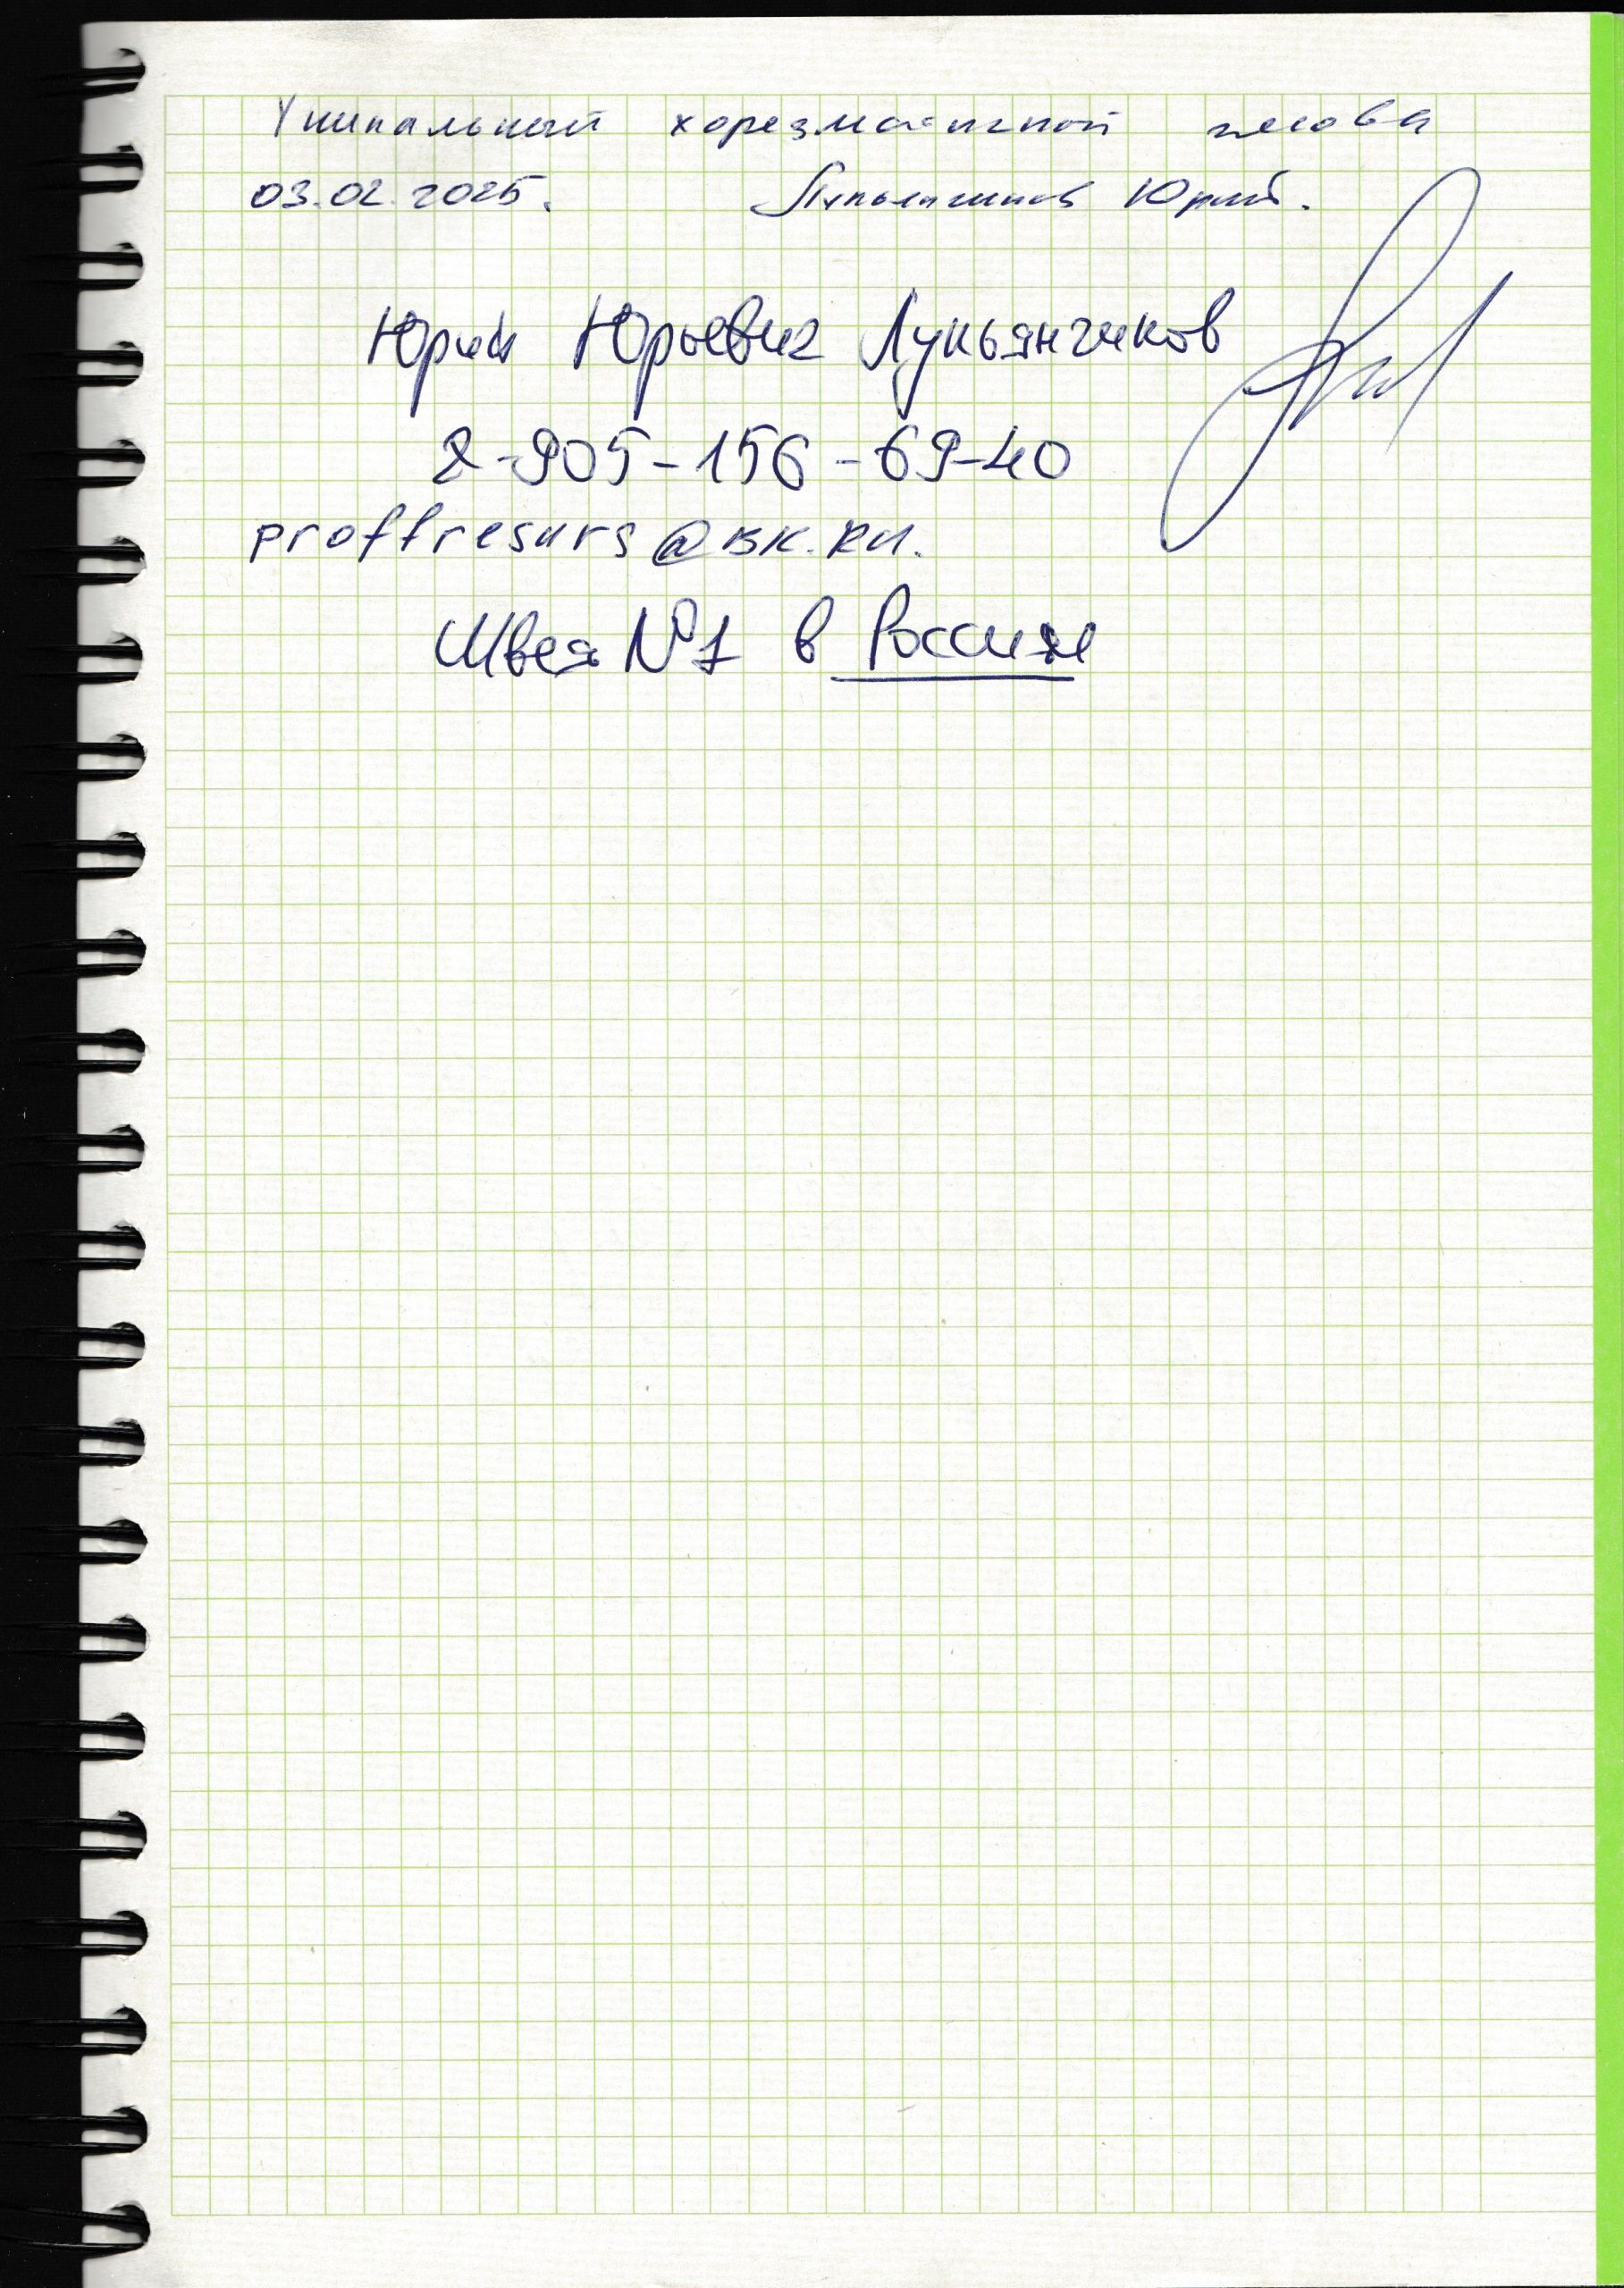 Уникальный харезматичной человек
03.02.2025. Лукьянчиков Юрий.
Юрий Юрьевич Лукьянчиков
8-905-156-69-40
proffresurs@BK.RU.
Швея №1 в России